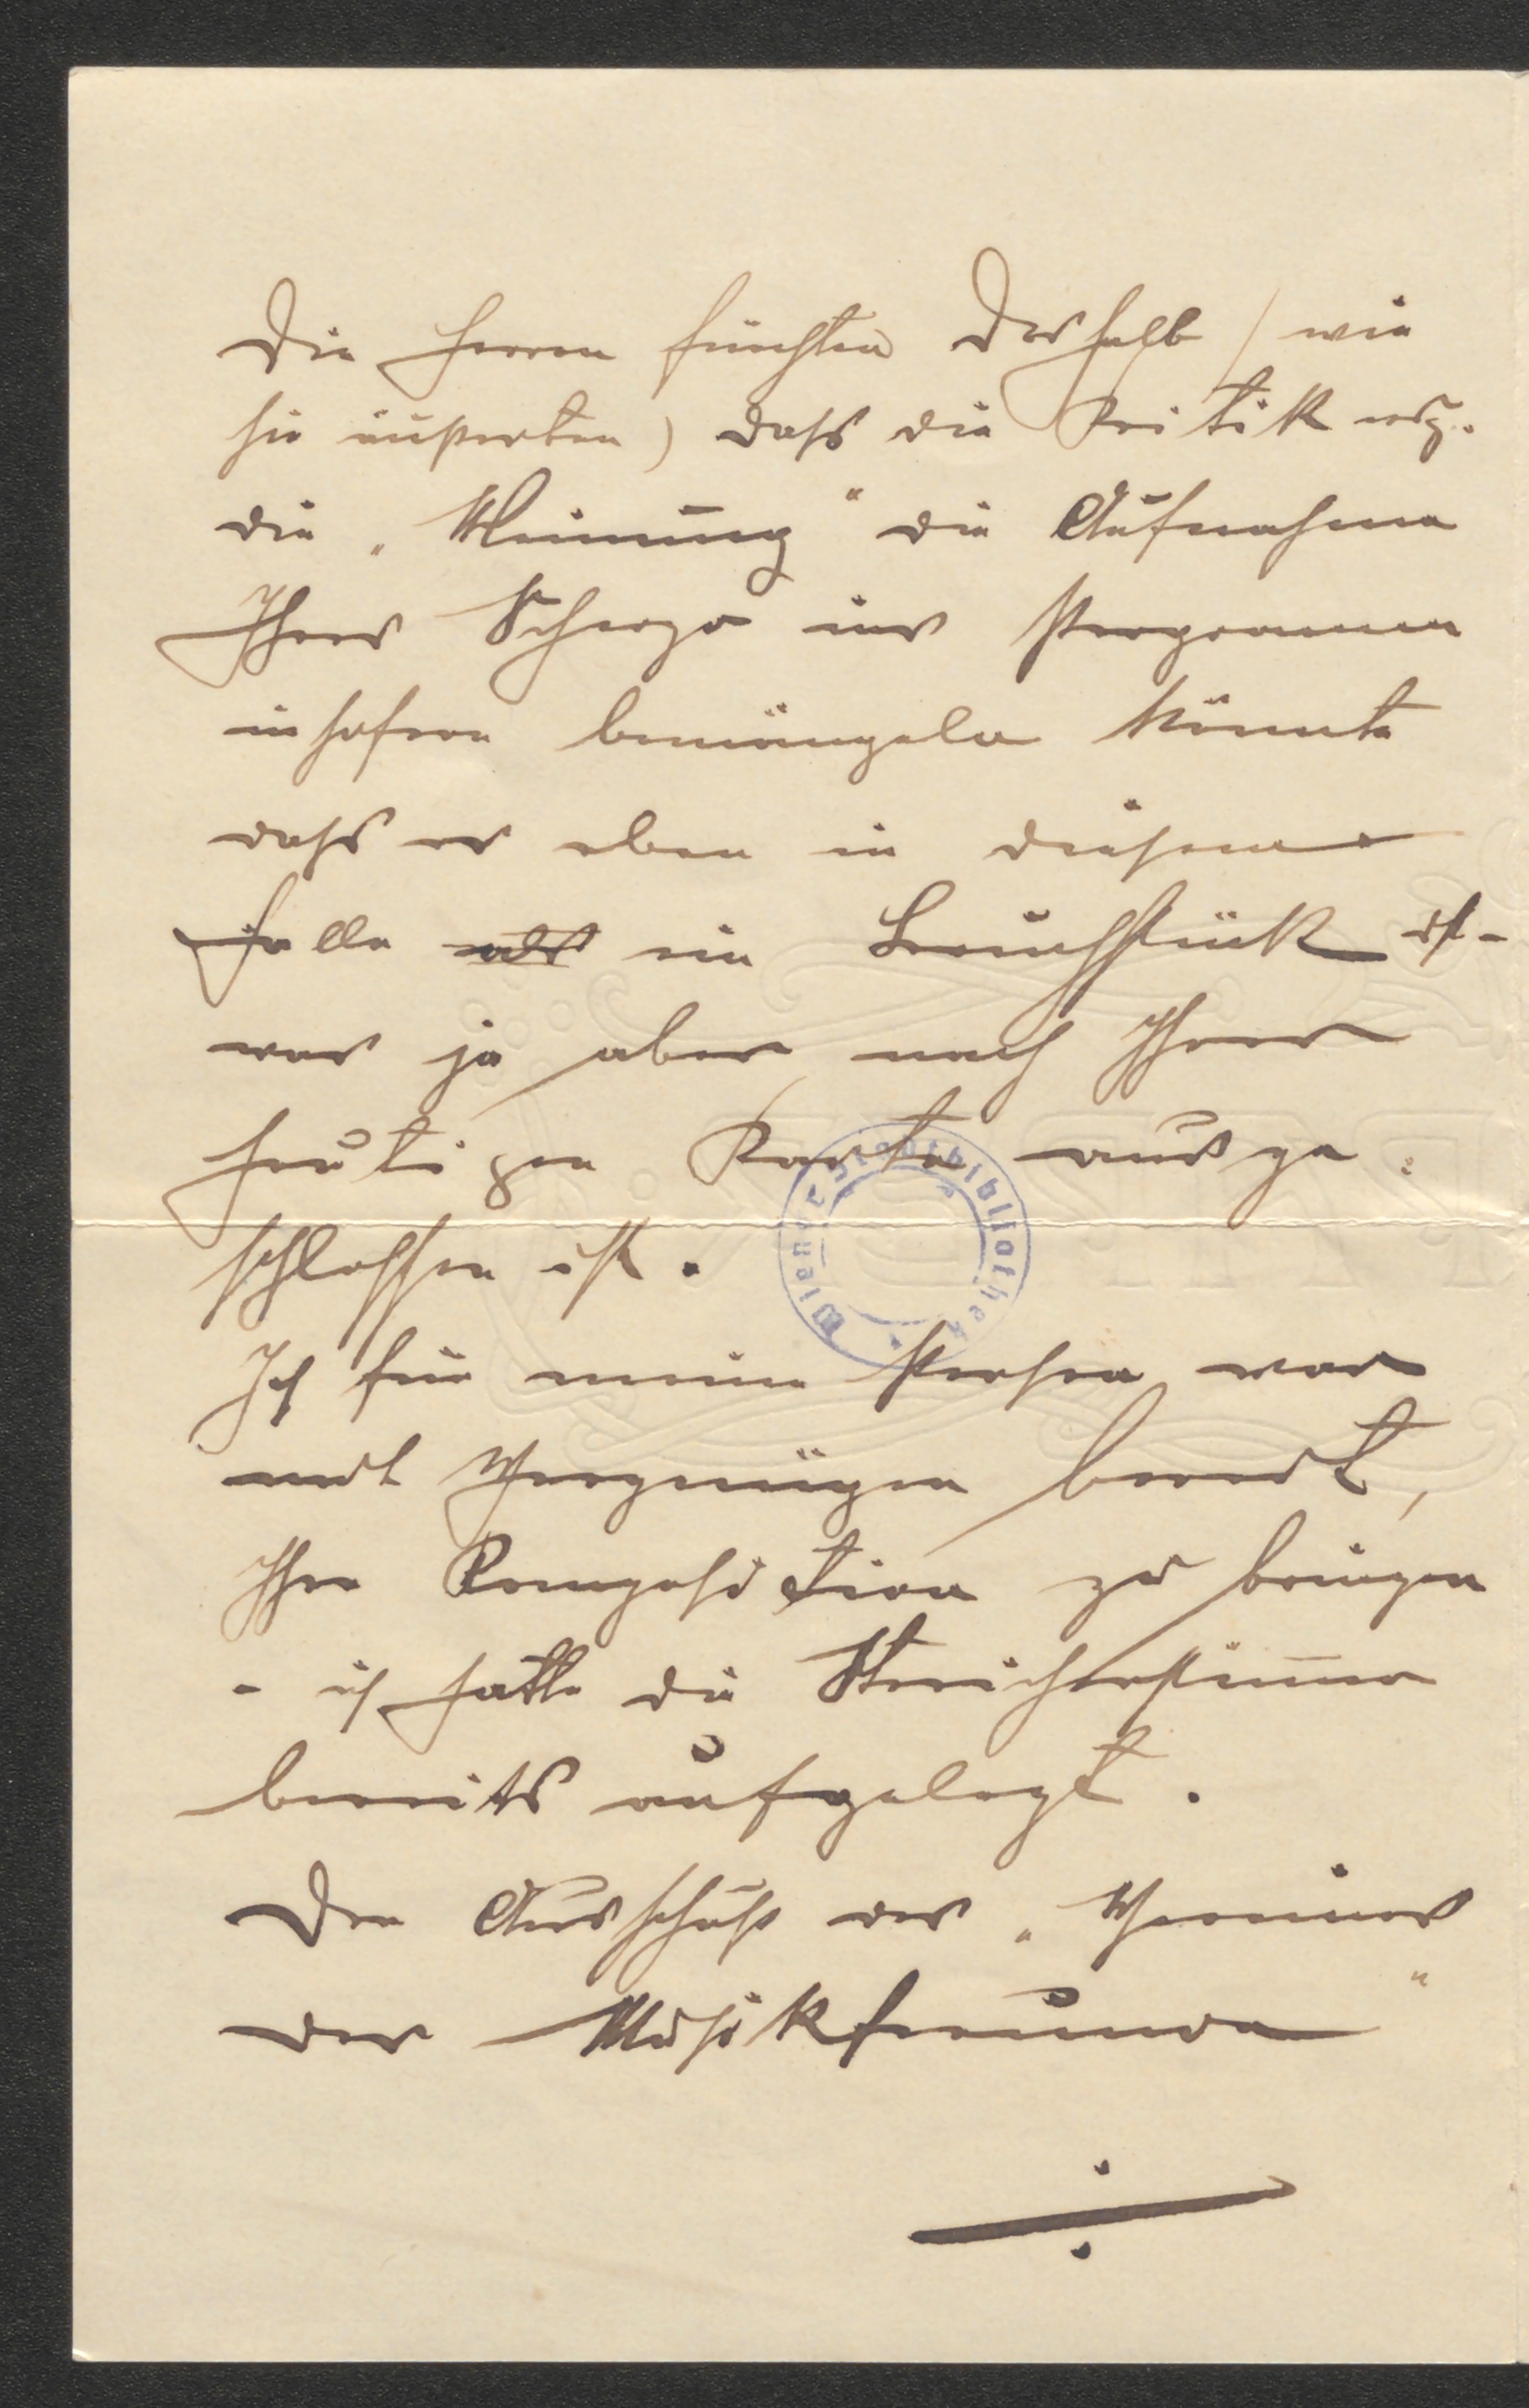 Die Herren fürchten deshalb (wie
sie äußerten) dass die Kritik resp.
die „Meinung" die Aufnahme
Ihres Scherzo ins Programm
insofern bemängeln könnte
dass es eben in diesem
Falle als ein Bruchstück ist -
was ja aber nach Ihrer
heutigen Karte ausge-
schlossen ist.
Ich für meine Person war
mit Vergnügen bereit,
Ihre Komposition zu bringen
- ich hatte die Streicherstimmen
bereits aufgelegt.
Der Ausschuß des „Vereines
der Musikfreunde"
Wiener Stadtbibliothek